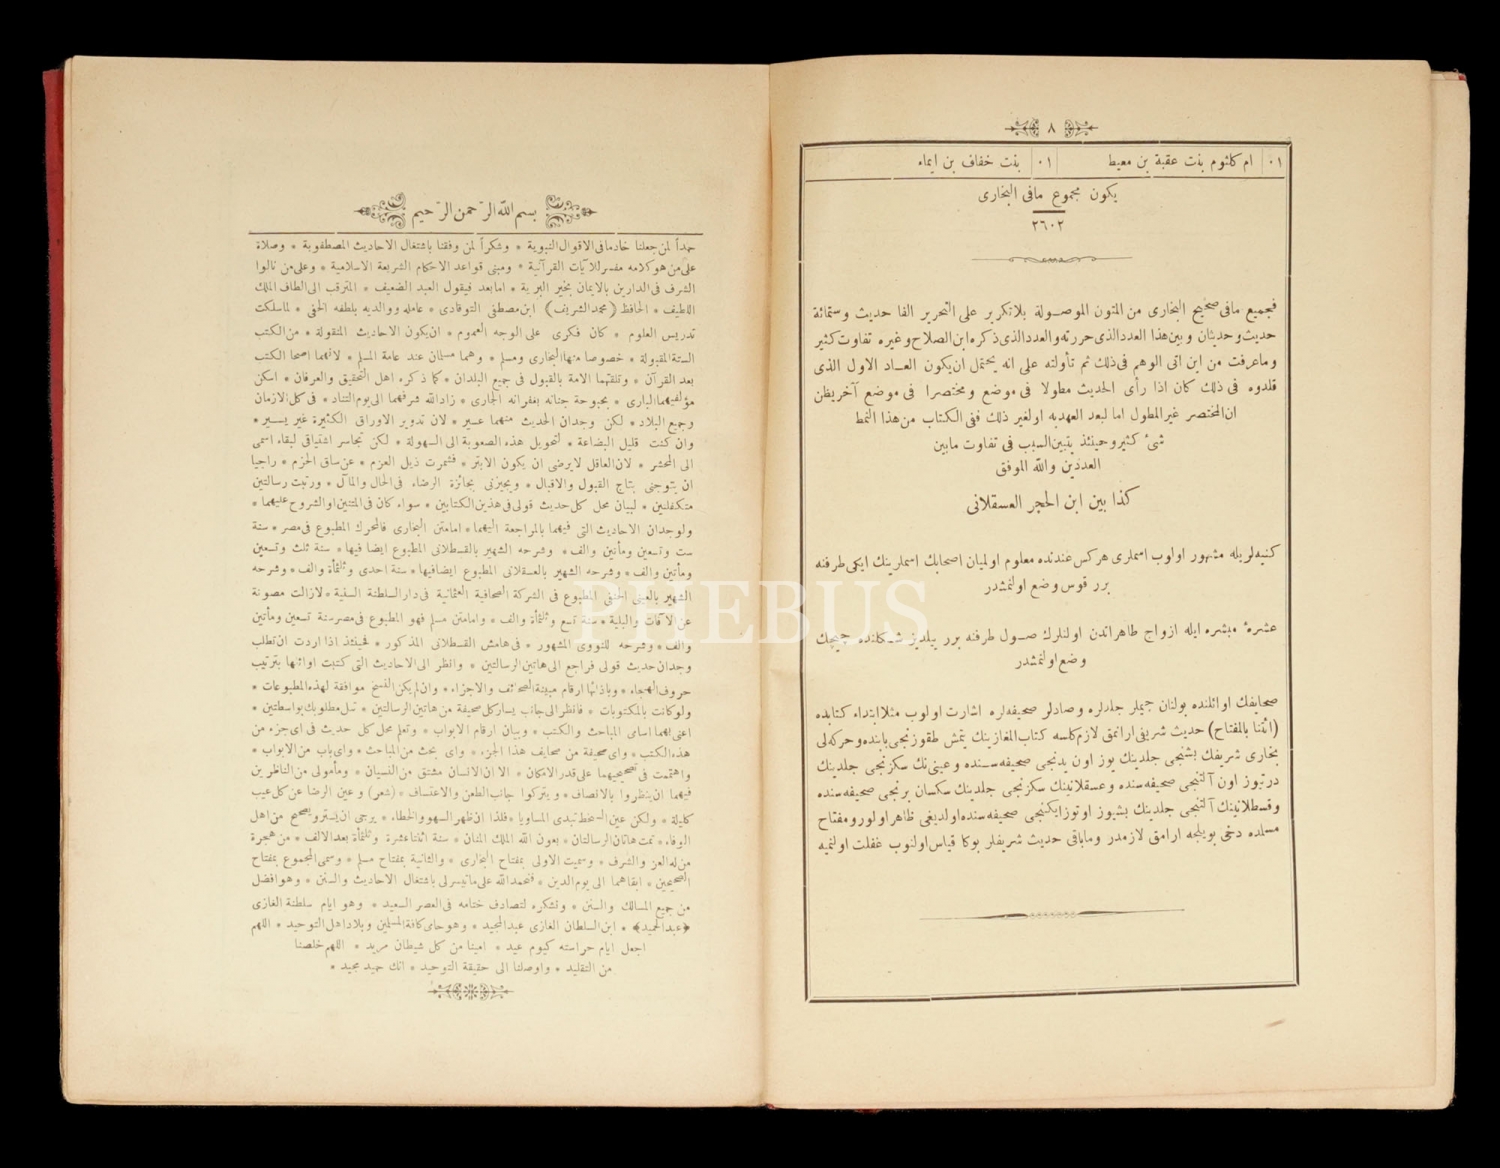 ٨
٠١ ام كلثوم بنت عقبة بن معيط ٠١ بنت خفاف بن ايماء
يكون مجموع مافى البخارى
٢٦٠٢
فجميع مافى صحيح البخارى من المتون الموصولة بلاتكرير على التحرير الفا حديث وستمائة
حديث وحديثان وبين هذا العدد الذى حررته والعدد الذى ذكره ابن الصلاح وغيره تفاوت كثير
وماعرفت من اين اتى الوهم فى ذلك ثم تأولته على انه يحتمل ان يكون العاد الاول الذى
قلدوه فى ذلك كان اذا رأى الحديث مطولا فى موضع ومختصرا فى موضع آخر يظن
ان المختصر غير المطول اما لبعد العهد به او لغير ذلك ففى الكتاب من هذا النمط
شئ كثير وحينئذ يتبين السبب فى تفاوت مابين
العددين والله الموفق
كذا بين ابن الحجر العسقلانى
كنيه لريله مشهور اولوب اسملرى هركس عندنده معلوم اولميان اصحابك اسملرينك ايكى طرفنه
برر قوس وضع اولنمشدر
عشرۀ مبشره ايله ازواج طاهراتدن اولنلرك صول طرفنه برر ييلديز شكلنده چيچك
وضع اولنمشدر
صحايفك اوائلنده بولنان جيملر جلدلره وصادلر صحيفه لره اشارت اولوب مثلا ابتداء كتابده
(ائتنا بالمفتاح) حديث شريفى ارانمق لازم كلسه كتاب المغازينك يتمش طقوزنجى بابنده وحركه لى
بخارى شريفك بشنجى جلدينك يوز اون يدنجى صحيفه سنده وعينى نك سكزنجى جلدينك
درتيوز اون آلتنجى صحيفه سنده وعسقلانينك سكزنجى جلدينك سكسان برنجى صحيفه سنده
وقسطلانينك آلتنجى جلدينك بشيوز اوتوز ايكنجى صحيفه سنده اولديغى ظاهر اولور ومفتاح
مسلمده دخى بويلجه ارامق لازمدر وماباقى حديث شريفلر بوكا قياس اولنوب غفلت اولنميه
بسم الله الرحمن الرحيم
حمداً لمن جعلنا خادما فى الاقوال النبوية * وشكراً لمن وفقنا باشتغال الاحاديث المصطفوية * وصلاة
على من هو كلامه مفسر للآيات القرآنية * ومبنى قواعد الاحكام الشريعة الاسلامية * وعلى من نالوا
الشرف فى الدارين بالايمان بخير البرية * امابعد فيقول العبد الضعيف * المترقب الى الطاف الملك
اللطيف * الحافظ (محمد الشريف) ابن مصطفى التوقادى * عامله ووالديه بلطفه الخفى * لما سلكت
تدريس العلوم * كان فكرى على الوجه العموم * ان يكون الاحاديث المنقولة * من الكتب
الستة المقبولة * خصوصا منها البخارى ومسلم * وهما مسلمان عند عامة المسلم * لانهما اصحا الكتب
بعد القرآن * وتلقتهما الامة بالقبول فى جميع البلدان * كما ذكره اهل التحقيق والعرفان * اسكن
مؤلفيهما البارى * بحبوحة جنانه بغفرانه الجارى * زاد الله شرفهما الى يوم التناد * فى كل الازمان
وجميع البلاد * لكن وجدان الحديث منهما عسير * لان تدوير الاوراق الكثيرة غير يسير *
وان كنت قليل البضاعة * لتحويل هذه الصعوبة الى السهولة * لكن تجاسر اشتياقى لبقاء اسمى
الى المحشر * لان العاقل لا يرضى ان يكون الابتر * فشمرت ذيل العزم * عن ساق الحزم * راجيا
ان يتوجنى بتاج القبول والاقبال * ويجيزنى بجائزة الرضاء فى الحال والمآل * ورتبت رسالتين
متكفلتين * لبيان محل كل حديث قولى فى هذين الكتابين * سواء كان فى المتنين او الشروح عليهما *
ولوجدان الاحاديث التى فيهما بالمراجعة اليهما * امامتن البخارى فالمحرك المطبوع فى مصر * سنة
ست وتسعين ومأتين والف * وشرحه الشهير بالقسطلانى المطبوع ايضا فيها * سنة ثلث وتسعين
ومأتين والف * وشرحه الشهير بالعسقلانى المطبوع ايضا فيها * سنة احدى وثلثمأة والف * وشرحه
الشهير بالعينى الحنفى المطبوع فى الشركة الصحافية العثمانية فى دار السلطنة السنية * لازالت مصونة
عن الآفات والبلية * سنة تسع وثلثمأة والف * وامامتن مسلم فهو المطبوع فى مصر سنة تسعين ومأتين
والف * وشرحه للنووى المشهور * فى هامش القسطلانى المذكور * فحينئذ اذا اردت ان تطلب
وجدان حديث قولى فراجع الى هاتين الرسالتين * وانظر الى الاحاديث التى كتبت اوائلها بترتيب
حروف الهجاء * وباذائها ارقام مبينة الصحائف والاجزاء * وان لم يكن النسخ موافقة لهذه المطبوعات *
ولو كانت بالمكتوبات * فانظر الى جانب يسار كل صحيفة من هاتين الرسالتين * تنل مطلوبك بواسطتين *
اعنى بهما اسامى المباحث والكتب * وبيان ارقام الابواب * وتعلم محل كل حديث فى اى جزء من
هذه الكتب * واى صحيفة من صحايف هذا الجزء * واى بحث من المباحث * واى باب من الابواب *
واهتممت فى تصحيحهما على قدر الامكان * الا ان الانسان مشتق من النسيان * ومأمولى من الناظرين
فيهما ان ينظروا بالانصاف * ويتركوا جانب الطعن والاعتساف * (شعر) وعين الرضا عن كل عيب
كليلة * ولكن عين السخط تبدى المساويا * فلذا ان ظهر السهو والخطاء * يرجى ان يستر وبصحح من اهل
الوفاء * تمت هاتان الرسالتان * بعون الله الملك المنان * سنة اثنتا عشرة وثلثمأة بعد الالف * من هجرة
من له العز والشرف * وسميت الاولى بمفتاح البخارى * والثانية بمفتاح مسلم * وسمى المجموع بمفتاح
الصحيحين * ابقاهما الى يوم الدين * فنحمد الله على ماتيسر لى باشتغال الاحاديث والسنن * وهو افضل
من جميع المسالك والسنن * ونشكره لتصادف ختامه فى العصر السعيد * وهو ايام سلطنة الغازى
﴿عبد الحميد﴾ * ابن السلطان الغازى عبد المجيد * وهو حامى كافة المسلمين وبلاد اهل التوحيد * اللهم
اجعل ايام حراسته كيوم عيد * امينا من كل شيطان مريد * اللهم خلصنا
من التقليد * واوصلنا الى حقيقة التوحيد * انك حميد مجيد *
PHEBUS